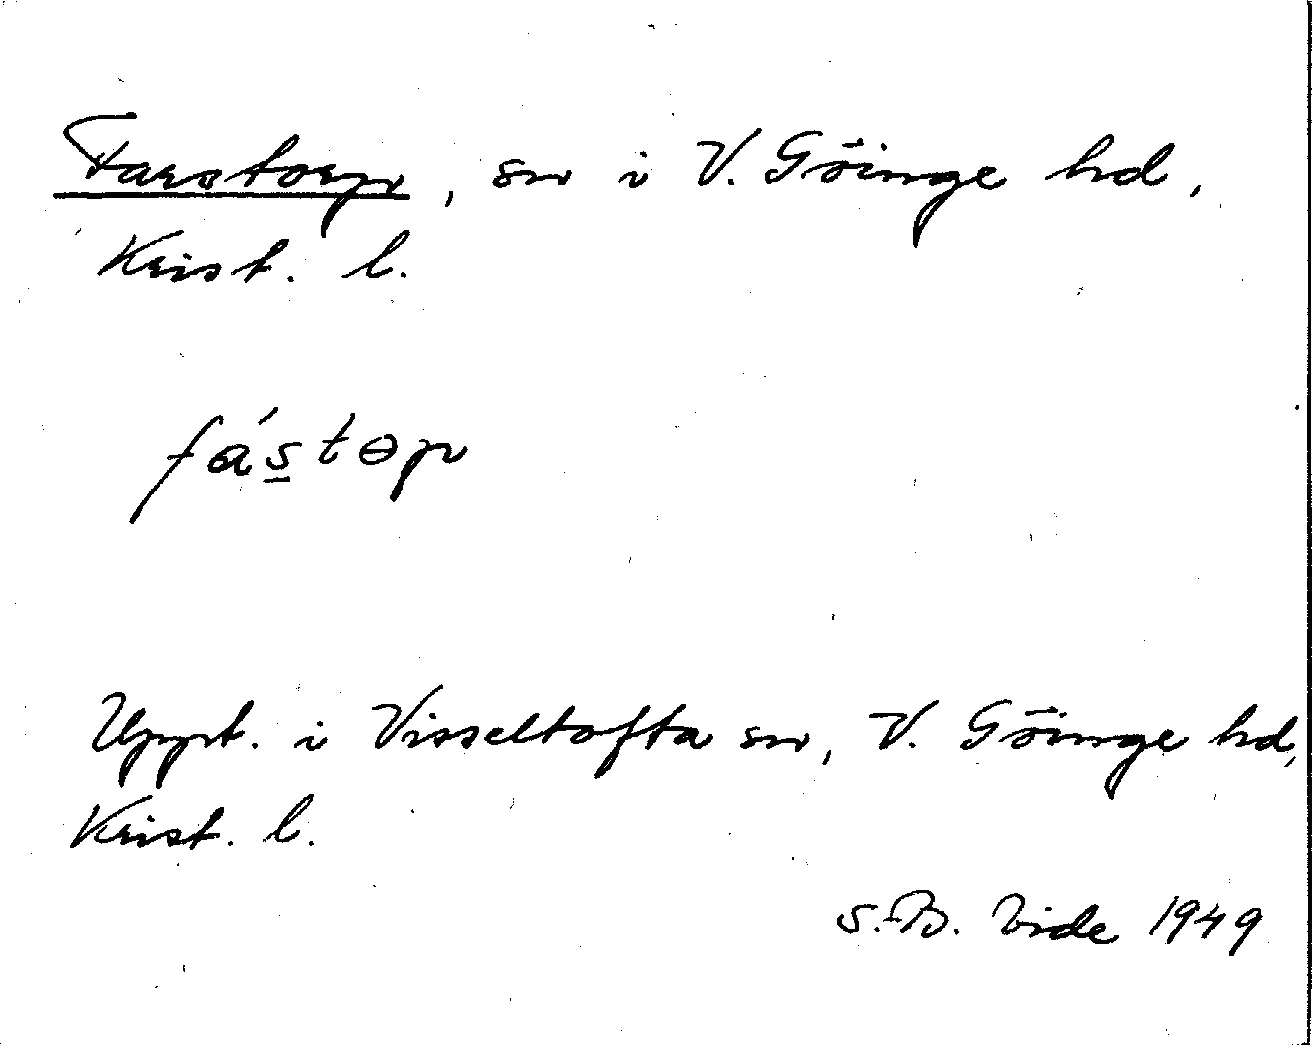 Farstorp, sn i V. Göinge hd,
Krist. l.
fás̲tɵp
Uppt. i Visseltofta sn, V. Göinge hd,
Krist. l.
S.-B. Vide 1949